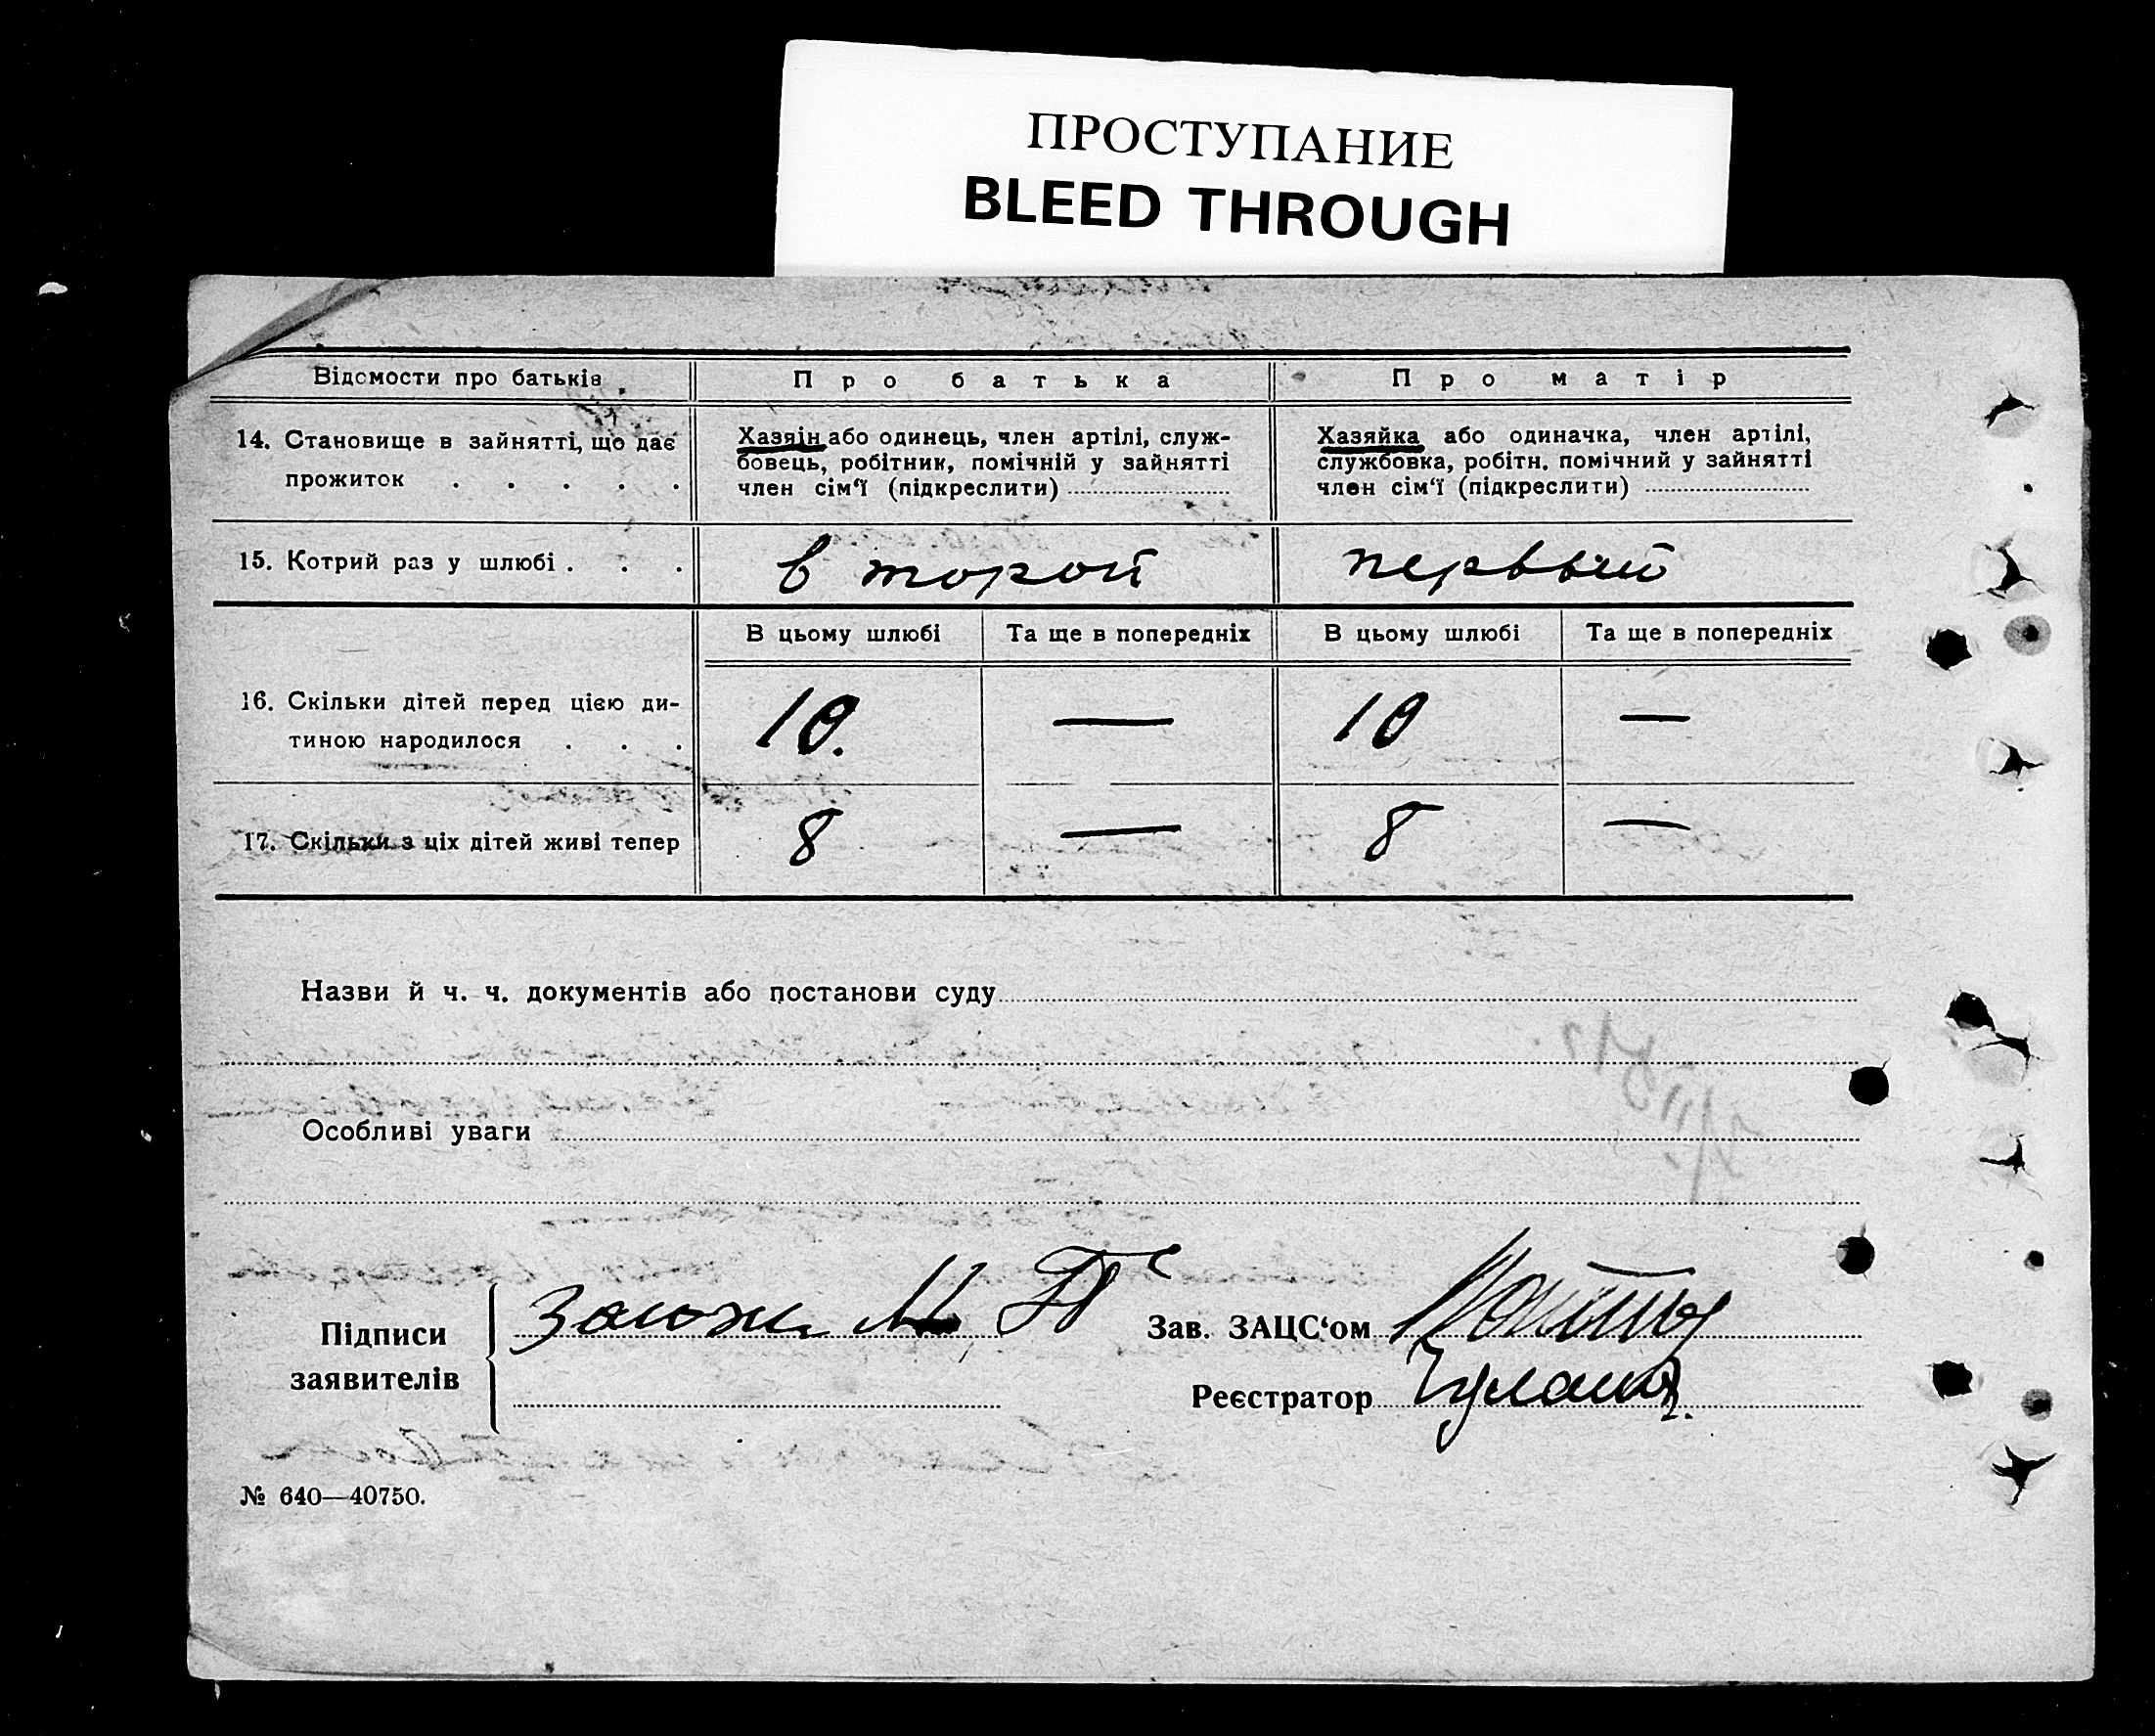 ПРОСТУПАНИЕ
BLEED THROUGH
Відомости про батьків
Про батька
Про матір
14. Становище в зайнятті, що дає
прожиток . . . . .
Хазяїн або одинець, член артілі, служ-
бовець, робітник, помічній у зайнятті
член сім‘ї (підкреслити)
Хазяйка або одиначка, член артілі,
службовка, робітн. помічний у зайнятті
член сім‘ї (підкреслити)
15. Котрий раз у шлюбі . . .
второй
первый
В цьому шлюбі
Та ще в попередніх
В цьому шлюбі
Та ще в попередніх
16. Скільки дітей перед цією ди-
тиною народилося . . .
10.
—
10
—
17. Скільки з ціх дітей живі тепер
8
—
8
—
Назви й ч. ч. документів або постанови суду
Особливі уваги
Підписи
заявителів
Зав. ЗАЦС‘ом
Реєстратор
№ 640—40750.